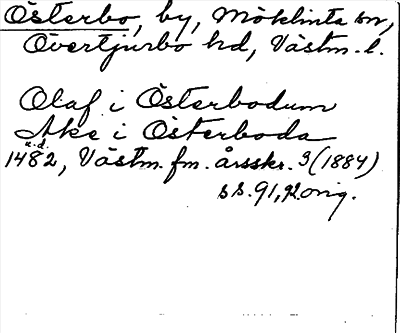 Österbo, by, Möklinta sn,
Övertjurbo hd, Västm. l.
Olaf i Österbodum
Åke i Österboda
u.d.
1482, Västm. fm. årsskr. 3 (1884)
ss. 91, R. orig.